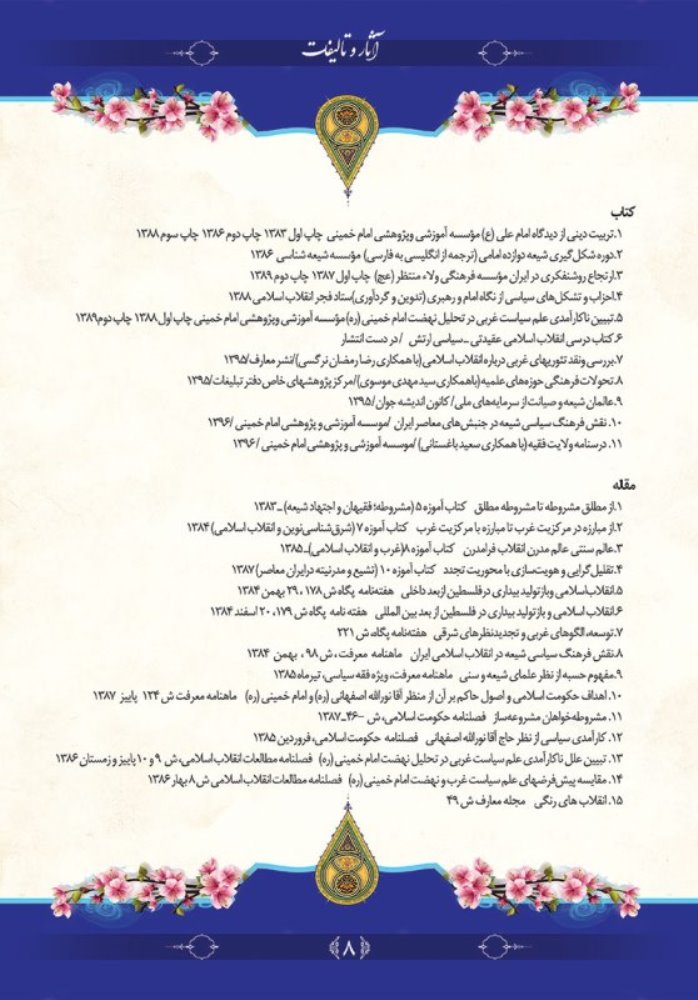 آثار و تالیفات
کتاب
۱.تربیت دینی از دیدگاه امام علی (ع) مؤسسه آموزشی وپژوهشی امام خمینی چاپ اول ۱۳۸۳ چاپ دوم ۱۳۸۶ چاپ سوم ۱۳۸۸
۲.دوره شکل‌گیری شیعه دوازده امامی (ترجمه از انگلیسی به فارسی) مؤسسه شیعه شناسی ۱۳۸۶
۳.ارتجاع روشنفکری در ایران مؤسسه فرهنگی ولاء منتظر (عج) چاپ اول ۱۳۸۷ چاپ دوم ۱۳۸۹
۴.احزاب و تشکل‌های سیاسی از نگاه امام و رهبری (تدوین و گردآوری)ستاد فجر انقلاب اسلامی ۱۳۸۸
۵.تبیین ناکارآمدی علم سیاست غربی در تحلیل نهضت امام خمینی (ره) مؤسسه آموزشی وپژوهشی امام خمینی چاپ اول ۱۳۸۸ چاپ دوم۱۳۸۹
۶.کتاب درسی انقلاب اسلامی عقیدتی ـ سیاسی ارتش / در دست انتشار
۷.بررسی ونقد تئوریهای غربی درباره انقلاب اسلامی (با همکاری رضا رمضان نرگسی)/نشر معارف/۱۳۹۵
۸.تحولات فرهنگی حوزه‌های علمیه (باهمکاری سید مهدی موسوی)/مرکز پژوهشهای خاص دفتر تبلیغات/۱۳۹۵
۹.عالمان شیعه و صیانت از سرمایه‌های ملی/ کانون اندیشه جوان/۱۳۹۵
۱۰. نقش فرهنگ سیاسی شیعه در جنبش‌های معاصر ایران /موسسه آموزشی و پژوهشی امام خمینی /۱۳۹۶
۱۱. درسنامه ولایت فقیه (با همکاری سعید باغستانی) /موسسه آموزشی و پژوهشی امام خمینی /۱۳۹۶
مقاله
۱.از مطلق مشروطه تا مشروطه مطلق کتاب آموزه ۵ (مشروطه؛ فقیهان و اجتهاد شیعه) ـ ۱۳۸۳
۲.از مبارزه در مرکزیت غرب تا مبارزه با مرکزیت غرب کتاب آموزه ۷ (شرق‌شناسی‌نوین و انقلاب اسلامی) ۱۳۸۴
۳.عالم سنتی عالم مدرن انقلاب فرامدرن کتاب آموزه ۸(غرب و انقلاب اسلامی)ـ ۱۳۸۵
۴.تقلیل‌گرایی و هویت‌سازی با محوریت تجدد کتاب آموزه ۱۰ (تشیع و مدرنیته درایران معاصر) ۱۳۸۷
۵.انقلاب‌اسلامی وبازتولید بیداری در فلسطین ازبعد داخلی هفته‌نامه پگاه ش ۱۷۸ ، ۲۹ بهمن ۱۳۸۴
۶.انقلاب اسلامی و بازتولید بیداری در فلسطین از بعد بین المللی هفته نامه پگاه ش ۱۷۹، ۲۰ اسفند ۱۳۸۴
۷.توسعه، الگوهای غربی و تجدیدنظرهای شرقی هفته‌نامه پگاه، ش ۲۲۱
۸.نقش فرهنگ سیاسی شیعه در انقلاب اسلامی ایران ماهنامه معرفت ، ش ۹۸ ، بهمن ۱۳۸۴
۹.مفهوم حسبه از نظر علمای شیعه و سنی ماهنامه معرفت، ویژه فقه سیاسی، تیرماه ۱۳۸۵
۱۰. اهداف حکومت اسلامی و اصول حاکم بر آن از منظر آقا نورالله اصفهانی (ره) و امام خمینی (ره) ماهنامه معرفت ش ۱۲۴ پاییز ۱۳۸۷
۱۱. مشروطه‌خواهان مشروعه‌ساز فصلنامه حکومت اسلامی، ش ۴۶- ـ۱۳۸۷
۱۲. کارآمدی سیاسی از نظر حاج آقا نورالله اصفهانی فصلنامه حکومت اسلامی، فروردین ۱۳۸۵
۱۳. تبیین علل ناکارآمدی علم سیاست غربی در تحلیل نهضت امام خمینی (ره) فصلنامه مطالعات انقلاب اسلامی، ش ۹ و ۱۰ پاییز و زمستان ۱۳۸۶
۱۴. مقایسه پیش‌فرضهای علم سیاست غرب و نهضت امام خمینی(ره) فصلنامه مطالعات انقلاب اسلامی ش ۸ بهار ۱۳۸۶
۱۵. انقلاب های رنگی مجله معارف ش ۴۹
۸